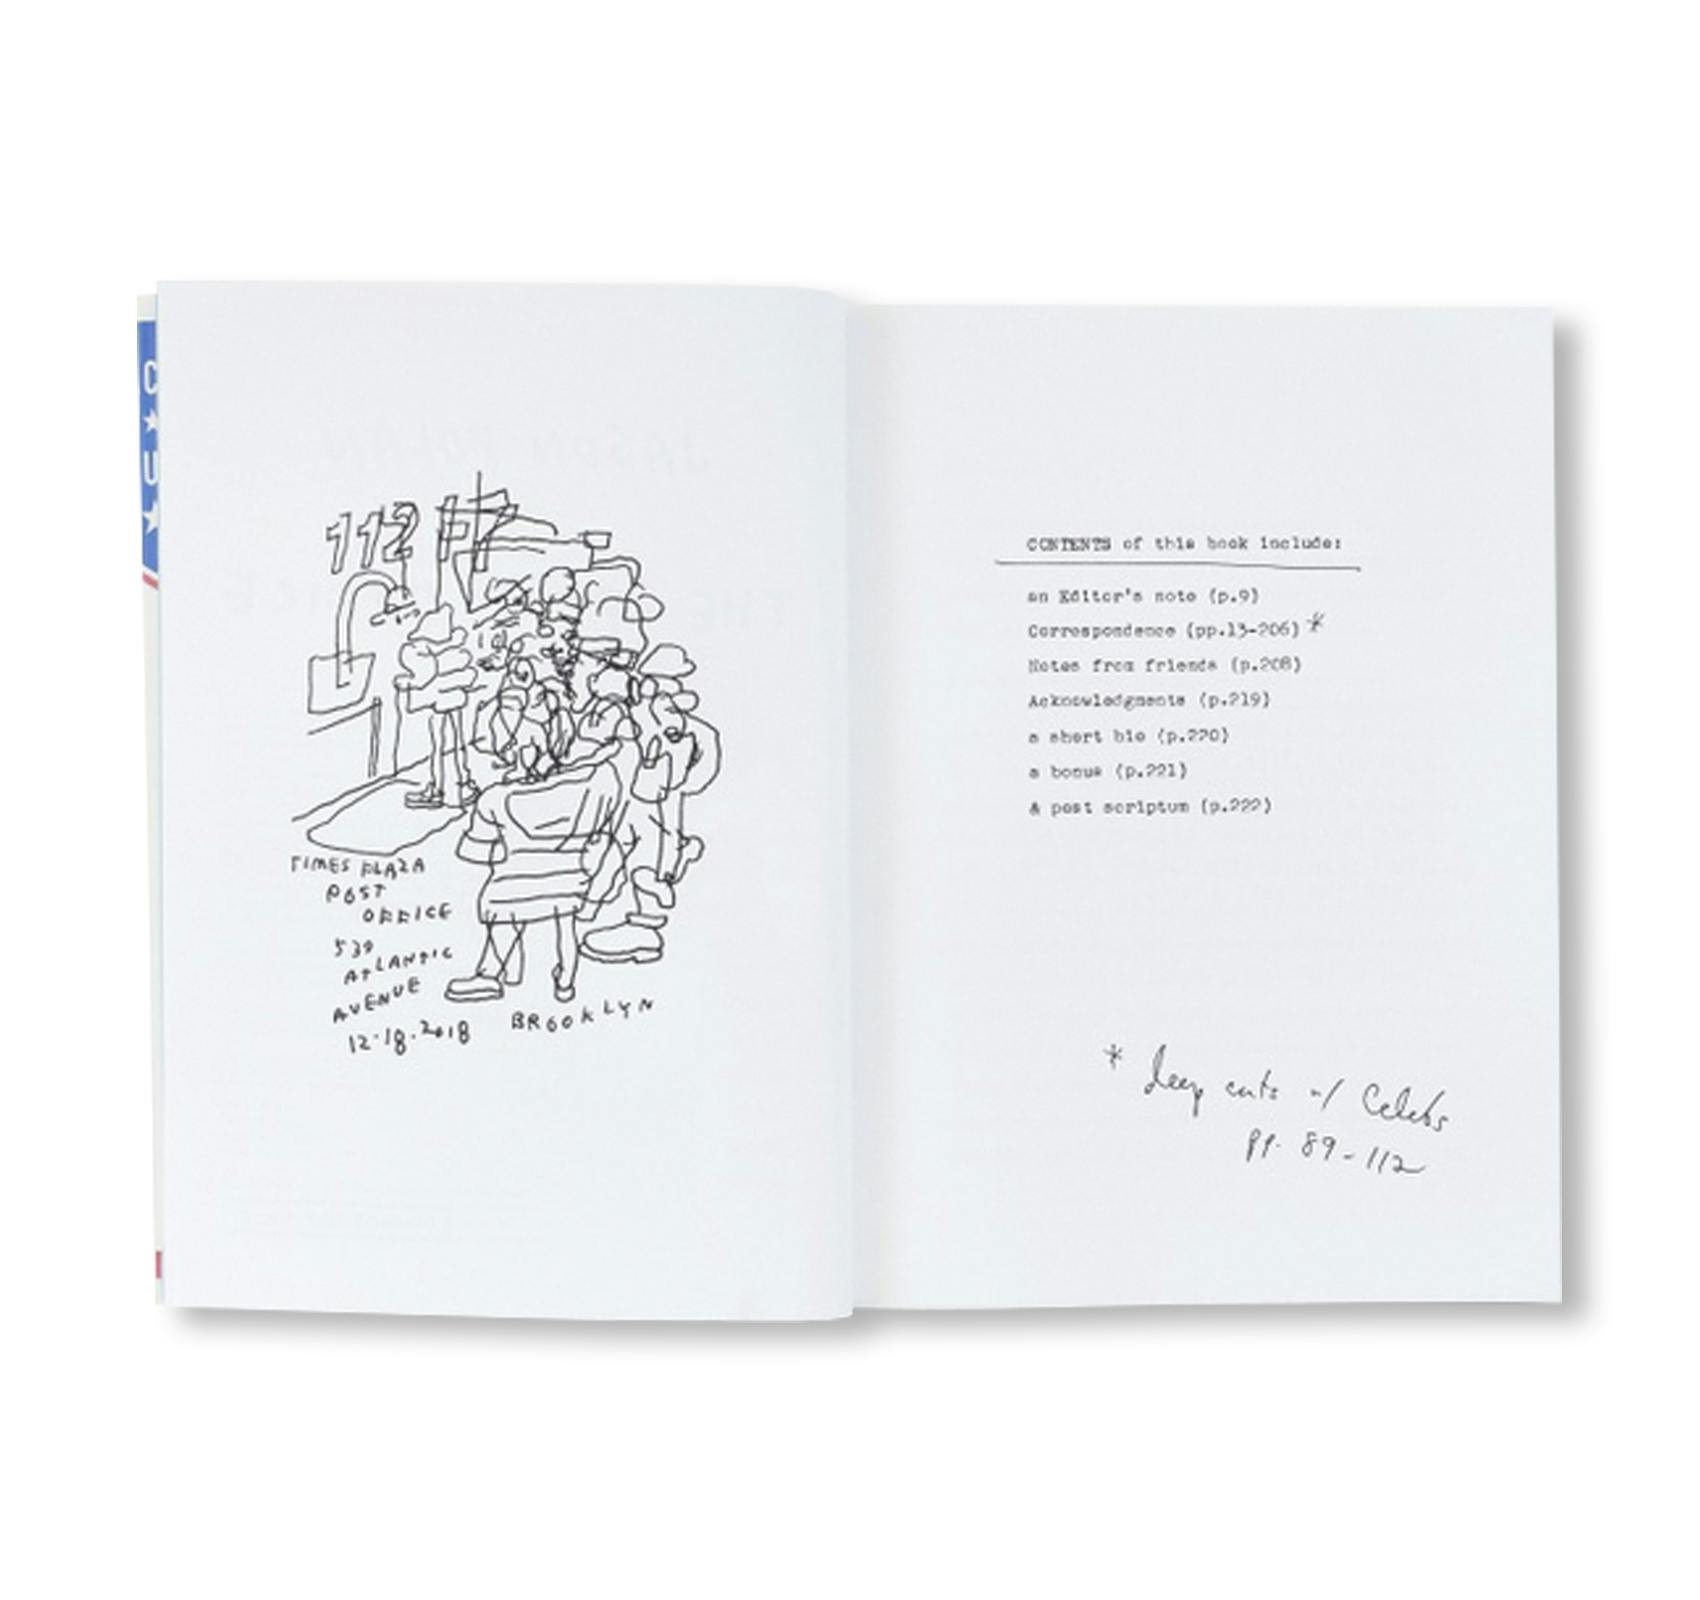 C
U
JASON POLAN
THE
112
TIMES PLAZA
POST
OFFICE
539
ATLANTIC
AVENUE
12.18.2018
BROOKLYN
CONTENTS of this book include:
an Editor's note (p.9)
Correspondence (pp.13-206)*
Notes from friends (p.208)
Acknowledgments (p.219)
a short bio (p.220)
a bonus (p.221)
& post scriptum (p.222)
* deep cuts w/ Celebs
pp. 89-112